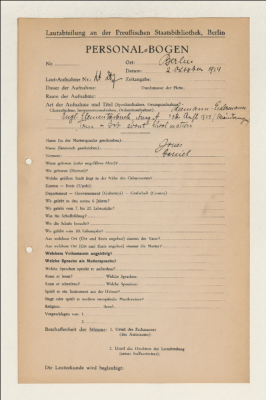 Lautabteilung an der Preußischen Staatsbibliothek, Berlin
PERSONAL-BOGEN
No. Ort: Berlin
Datum: 2 October 1934
Laut-Aufnahme Nr.: LA Zeitangabe:
Dauer der Aufnahme: Durchmesser der Platte:
Raum der Aufnahme:
Art der Aufnahme und Titel
Engl. Elementarbuch, Ausg. A
Name (in der Muttersprache geschrieben): Jones
Name (lateinisch geschrieben): Daniel
Vorname:
Wann geboren (oder ungefähres Alter)?
Wo geboren (Heimat)?
Welche größere Stadt liegt in der Nähe des Geburtsortes?
Kanton — Kreis (Ujedz):
Departement — Gouvernement (Gubernija) — Grafschaft (County):
Wo gelebt in den ersten 6 Jahren?
Wo gelebt vom 7. bis 20. Lebensjahr?
Was für Schulbildung?
Wo die Schule besucht?
Wo gelebt vom 20. Lebensjahr?
Aus welchem Ort (Ort und Kreis angeben) stammt der Vater?
Aus welchem Ort (Ort und Kreis angeben) stammt die Mutter?
Welchem Volksstamm angehörig?
Welche Sprache als Muttersprache?
Welche Sprachen spricht er außerdem?
Kann er lesen? Welche Sprachen?
Kann er schreiben? Welche Sprachen:
Spielt er ein Instrument aus der Heimat?
Singt oder spielt er modern europäische Musikweisen?
Religion: Beruf:
Vorgeschlagen von: 1.
2.
Beschaffenheit der Stimme: 1. Urteil des Fachmannes
(des Assistenten):
2. Urteil des Direktors der Lautabteilung
(seines Stellvertreters):
Die Lauturkunde wird beglaubigt: